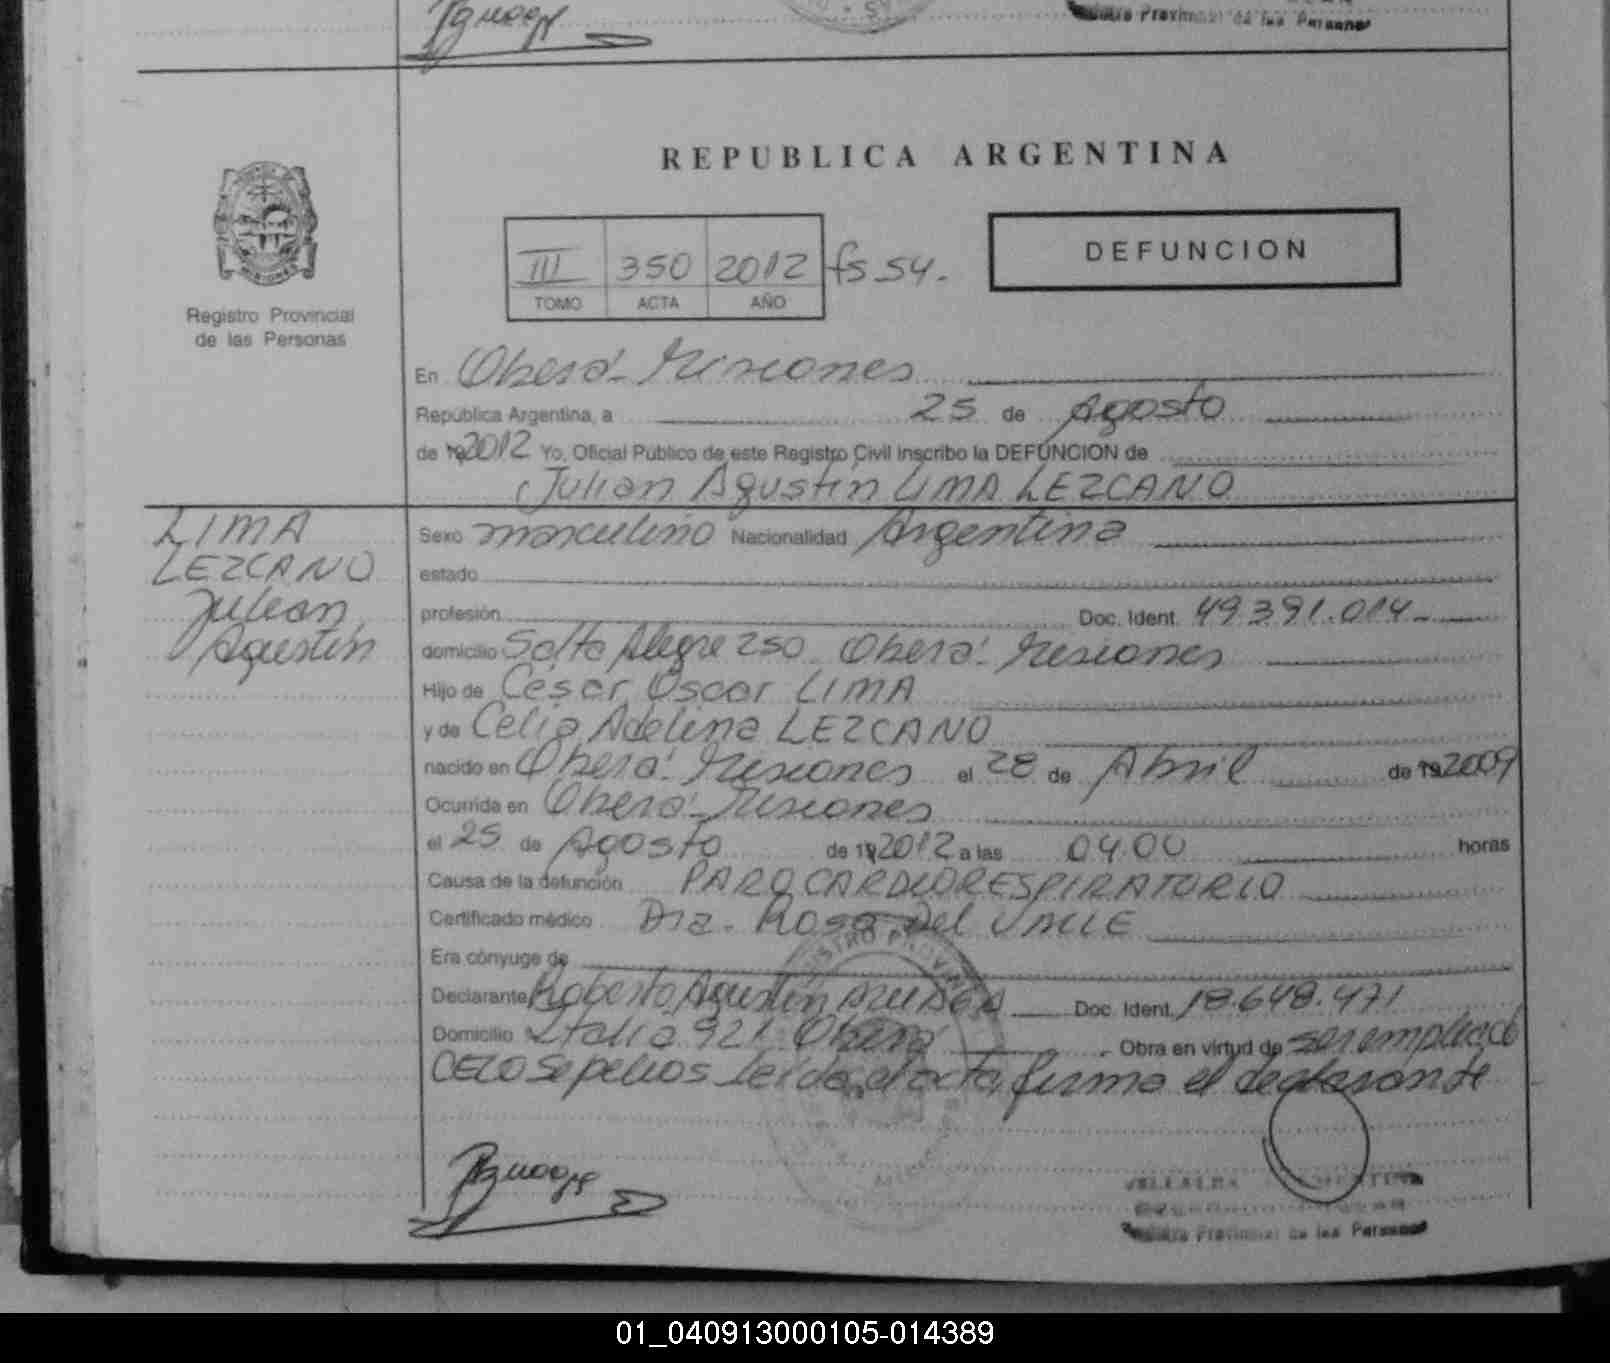 Registro Provincial de las Personas
REPUBLICA ARGENTINA
III 350 2012 fs 54.
TOMO ACTA AÑO
DEFUNCION
MISIONES
Registro Provincial
de las Personas
En Oberá - Misiones
República Argentina, a 25 de Agosto
de 19 2012 Yo, Oficial Público de este Registro Civil inscribo la DEFUNCION de
Julian Agustín LIMA LEZCANO
LIMA
LEZCANO
Julian
Agustín
Sexo masculino Nacionalidad Argentina
estado
profesión Doc. Ident. 49.391.014
domicilio Salto Alegre 250 Oberá - Misiones
Hijo de César Oscar LIMA
y de Celia Adelina LEZCANO
nacido en Oberá - Misiones el 28 de Abril de 19 2009
Ocurrida en Oberá - Misiones
el 25 de Agosto de 19 2012 a las 04.00 horas
Causa de la defunción PARO CARDIORESPIRATORIO
Certificado médico Dra. Rosa Del VALLE
Era cónyuge de
Declarante Roberto Agustín Doc. Ident. 18.648.471
Domicilio Italia 921 Oberá Obra en virtud de ser empleado
CELO Sepelios leída el acta, firma el declarante
Registro Provincial de las Personas
01_040913000105-014389